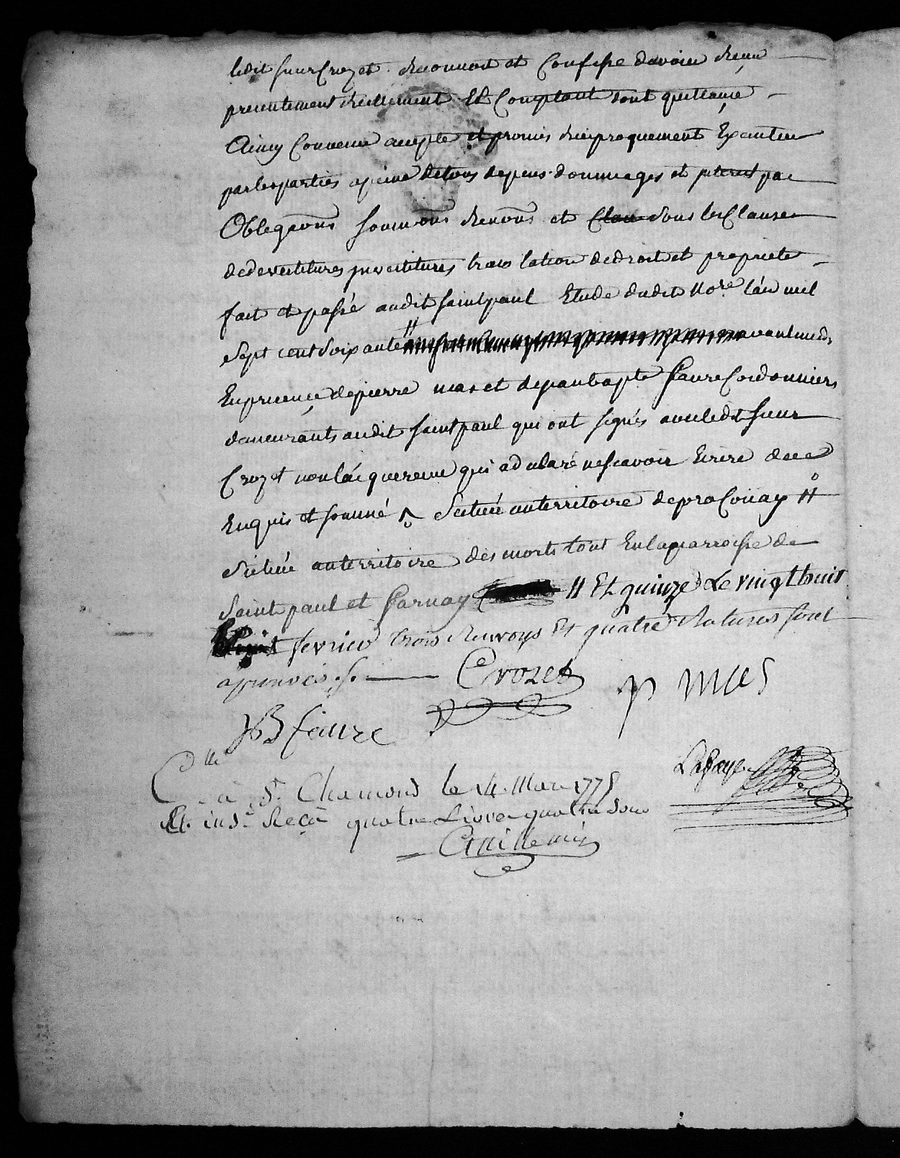 ledit sieur Crozet reconnoit et Confesse davoir Receu
presentement reellement Et Comptant dont quittance
Ainsy Convenu accepté et promis reciproquement Executer
par les parties apeine de tous depens dommages et interest par
Obligaõns soumiõns Renõns et sous les Clauses
dedevestitures investitures translation de droit et proprieté
fait et passé audit saint paul Etude dudit Nore Lan mil
sept cent soixante // avant midy
En presence de pierre mas et de jean bapte faure Cordonniers
demeurants audit saint paul qui ont signés avec ledit sieur
Crozet non lacquereure qui a declaré ne scavoir Ecrire de ce
Enquis et sommé ^ scituée au territoire de //
scituée au territoire des morts tout En la parroisse de
saint paul et farnay // Et quinze Le vingt huit
fevrier trois Renvoys Et quatre Ratures sont
approuvés
Crozet
p mas
JB faure
Cllé à St Chamond le 14 Mars 1775
Et ins. Reçu quatre Livres quatre sous
Lafaye